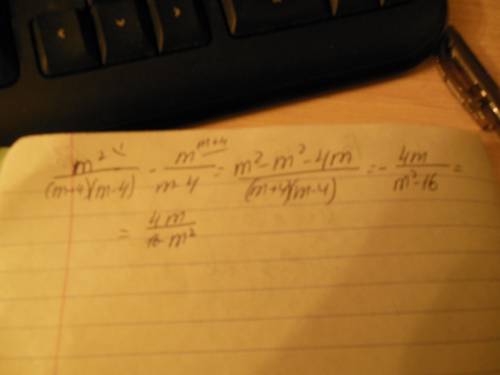 m² \ / (m+4)(m-4) - m ^m+4 / m-4 = m² - m² - 4m / (m+4)(m-4) = - 4m / m² - 16 =
= 4m / 16 - m²